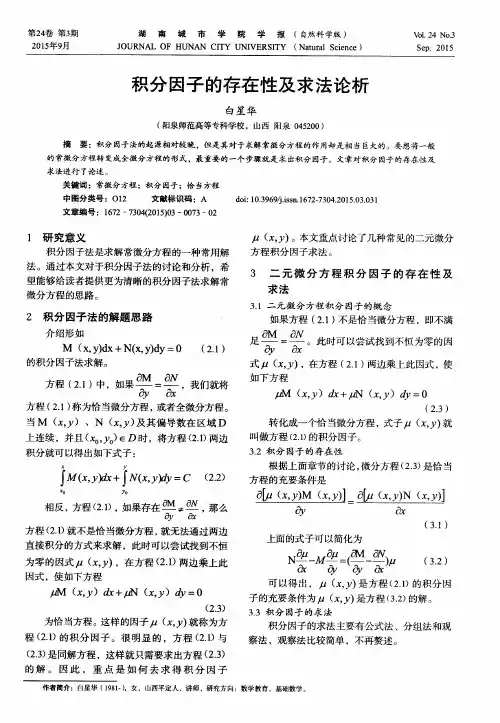 第24卷 第3期
湖 南 城 市 学 院 学 报 （自然科学版）
Vol. 24 No.3
2015年9月
JOURNAL OF HUNAN CITY UNIVERSITY (Natural Science)
Sep. 2015
积分因子的存在性及求法论析
白星华
（阳泉师范高等专科学校，山西 阳泉 045200）
摘 要：积分因子法的起源相对较晚，但是其对于求解常微分方程的作用却是相当巨大的。要想将一般
的常微分方程转变成全微分方程的形式，最重要的一个步骤就是求出积分因子。文章对积分因子的存在性及
求法进行了论述。
关键词：常微分方程；积分因子；恰当方程
中图分类号：O12 文献标识码：A doi: 10.3969/j.issn. 1672-7304.2015.03.031
文章编号：1672–7304(2015)03–0073–02
1 研究意义
积分因子法是求解常微分方程的一种常用解
法。通过本文对于积分因子法的讨论和分析，希
望能够给读者提供更为清晰的积分因子法求解常
微分方程的思路。
2 积分因子法的解题思路
介绍形如
M（x, y)dx + N(x, y)dy = 0 （2.1）
的积分因子法求解。
方程（2.1）中，如果 ∂M/∂y = ∂N/∂x，我们就将
方程（2.1）称为恰当微分方程，或者全微分方程。
当 M（x，y）、N（x，y）及其偏导数在区域 D
上连续，并且(x₀, y₀)∈D时，将方程(2.1)两边
积分就可以得出如下式子：
∫M(x, y)dx + ∫N(x, y)dy = C （2.2）
相反，方程(2.1)，如果存在 ∂M/∂y ≠ ∂N/∂x，那么
方程(2.1)就不是恰当微分方程，就无法通过两边
直接积分的方式来求解，此时可以尝试找到不恒
为零的因式 μ（x, y），在方程(2.1)两边乘上此
因式，使如下方程
μM（x, y）dx + μN（x, y）dy = 0
(2.3)
为恰当方程。这样的因子 μ（x, y）就称为方
程（2.1）的积分因子。很明显的，方程（2.1）与
(2.3)是同解方程，这样就只需要求出方程（2.3）
的解。因此，重点是如何去求得积分因子
μ（x, y）。本文重点讨论了几种常见的二元微分
方程积分因子求法。
3 二元微分方程积分因子的存在性及
求法
3.1 二元微分方程积分因子的概念
如果方程（2.1）不是恰当微分方程，即不满
足 ∂M/∂y = ∂N/∂x。此时可以尝试找到不恒为零的因
式 μ（x, y），在方程（2.1）两边乘上此因式，使
如下方程
μM（x, y）dx + μN（x, y）dy = 0
（2.3）
转化成一个恰当微分方程，式子 μ（x, y）就
叫做方程(2.1)的积分因子。
3.2 积分因子的存在性
根据上面章节的讨论,微分方程(2.3)是恰当
方程的充要条件是
∂[μ（x, y)M（x, y)]/∂y = ∂[μ（x, y)N（x, y)]/∂x
（3.1）
上面的式子可以简化为
N∂μ/∂x − M∂μ/∂y = (∂M/∂y − ∂N/∂x)μ （3.2）
可以得出，μ（x, y）是方程（2.1）的积分因
子的充要条件为 μ（x, y）是方程(3.2)的解。
3.3 积分因子的求法
积分因子的求法主要有公式法、分组法和观
察法，观察法比较简单，不再赘述。
作者简介：白星华（1981-），女，山西平定人，讲师，研究方向：数学教育，基础数学。